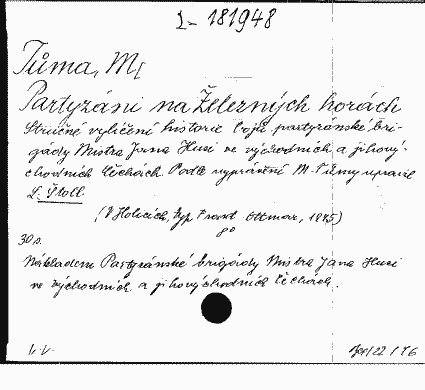 I-181948
Tůma, M[
Partyzáni na Železných horách
Stručné vylíčení historie bojů partyzánské bri-
gády Mistra Jana Husi ve východních a jihový-
chodních Čechách. Podle vyprávění M. Tůmy upravil
L. Štoll.
(V Holicích, typ. Ottmar, 1945)
8°
30 s.
Nákladem Partyzánské brigády Mistra Jana Husi
ve východních a jihovýchodních Čechách.